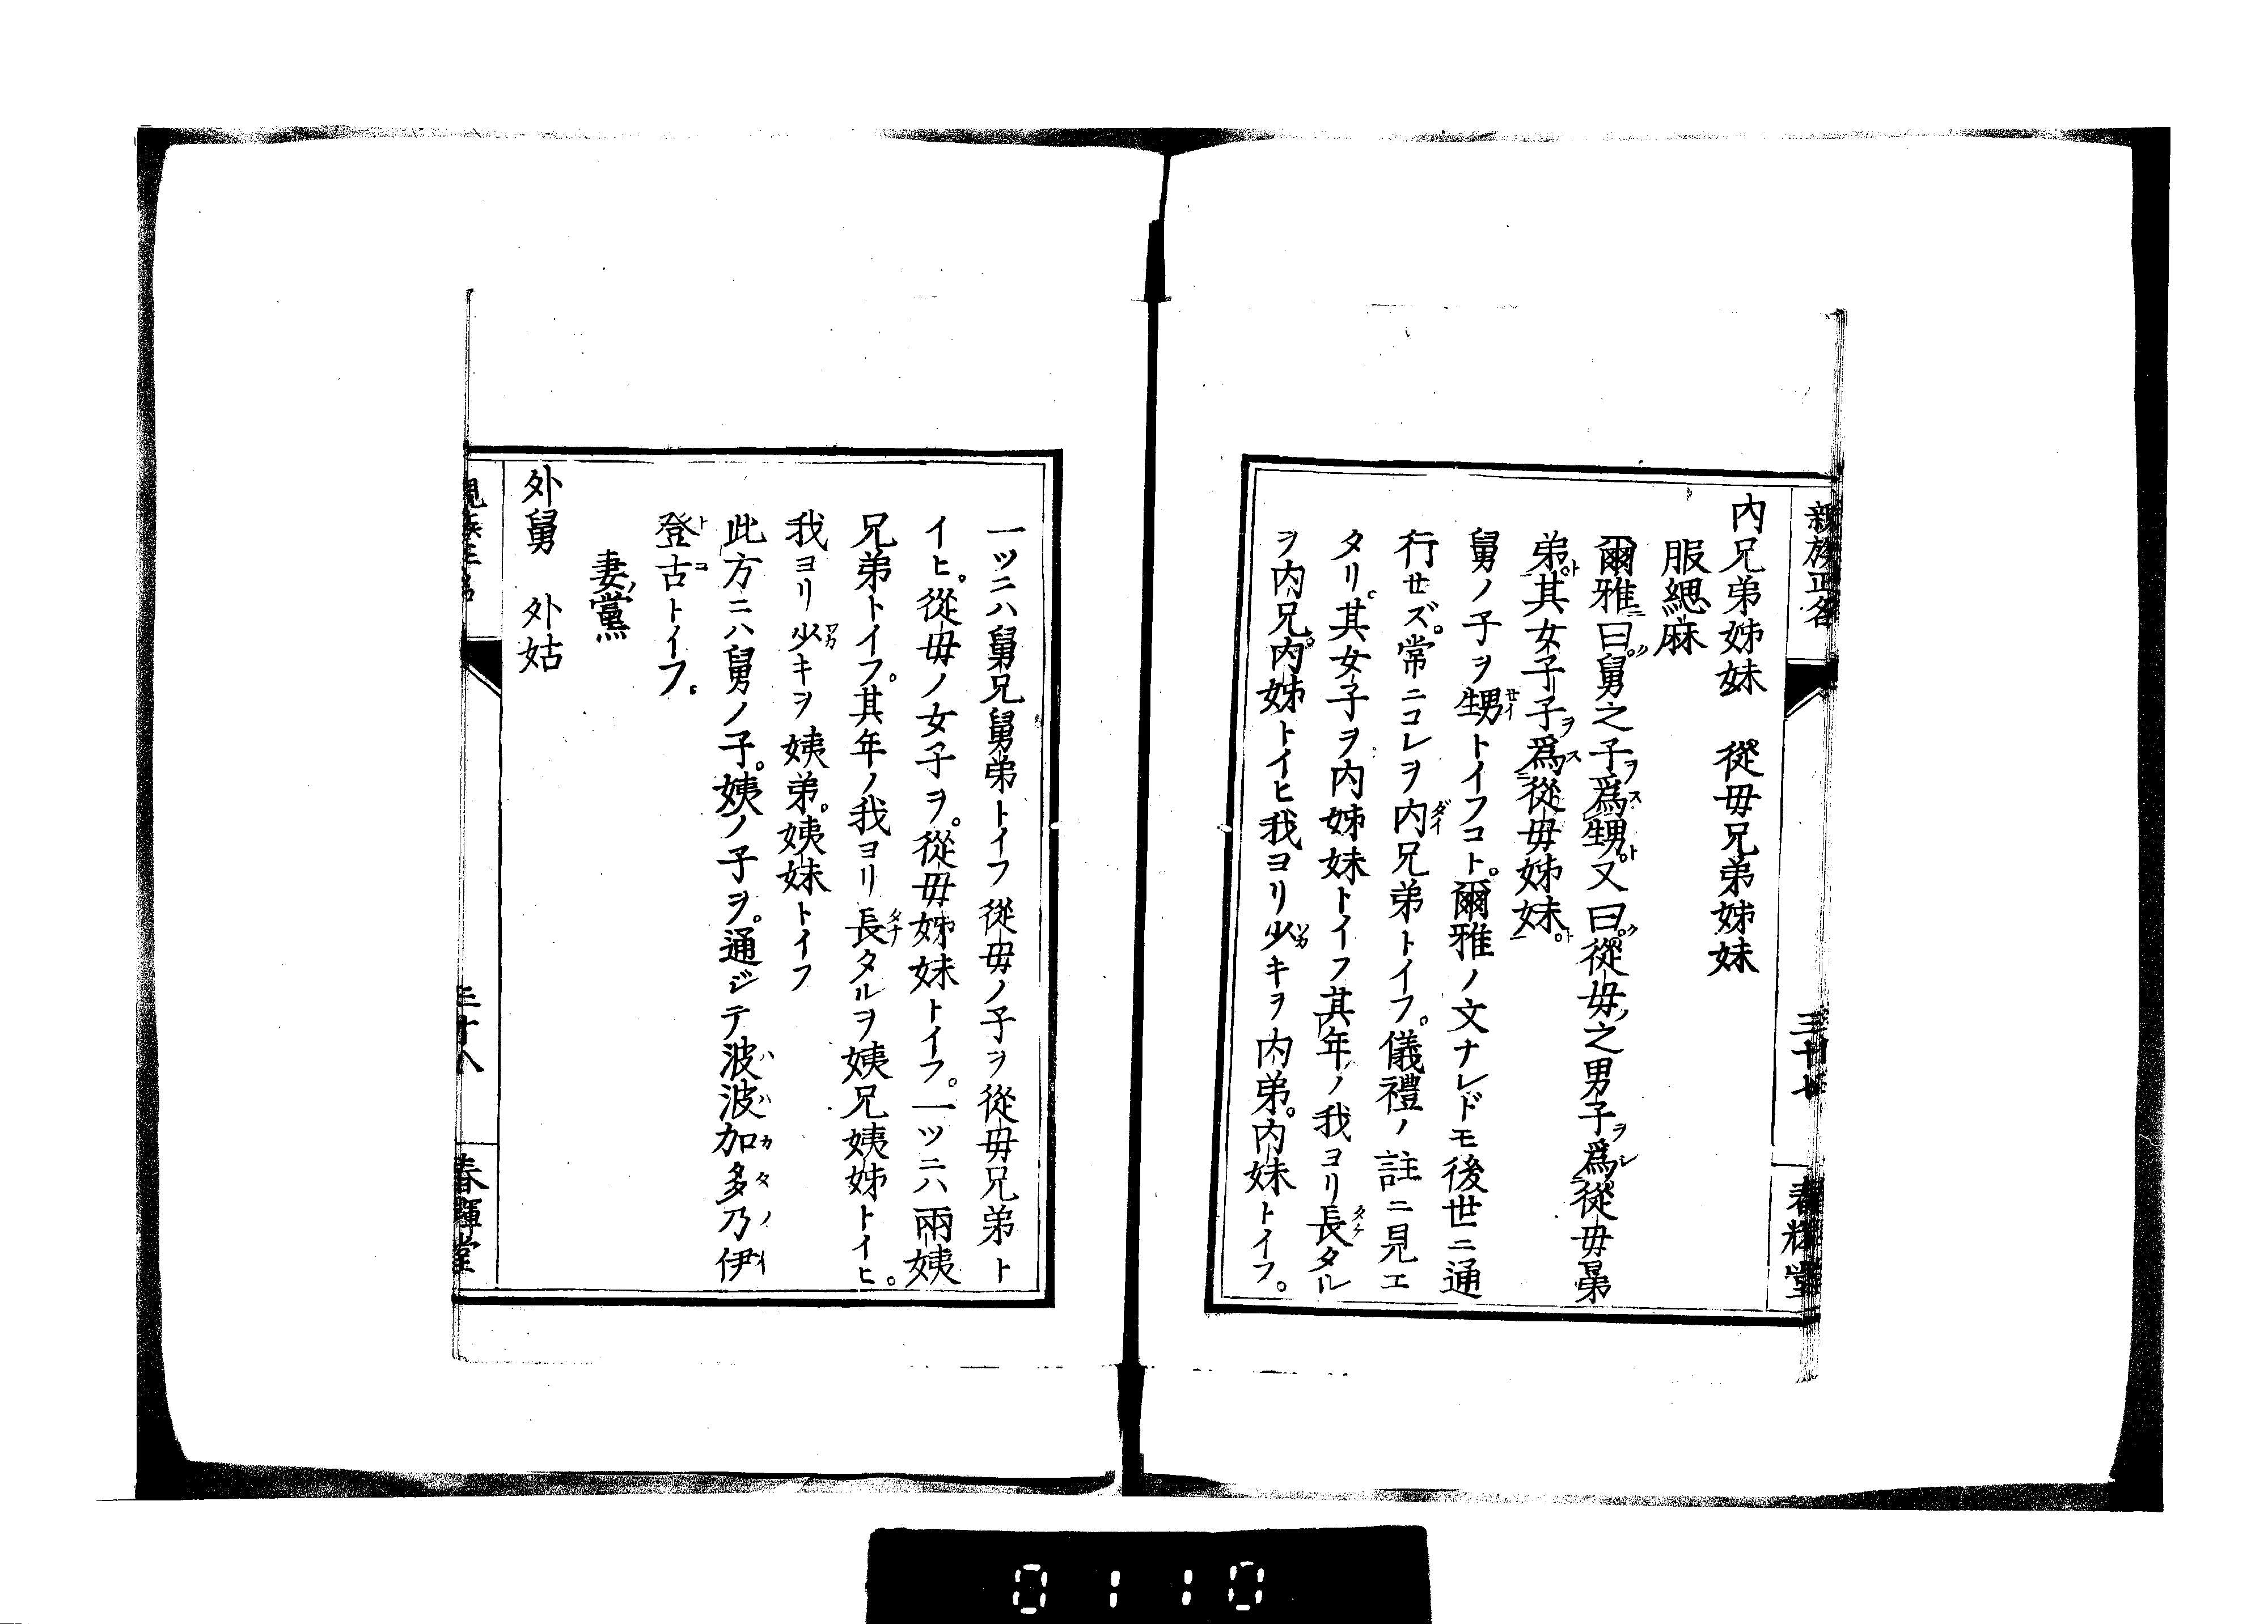 親族正名 三十七 春輝堂
內兄弟姊妹 從母兄弟姊妹
服緦麻
爾雅曰舅之子ヲ爲甥ト又曰從母之男子ヲ爲從母晜
弟ト其女子子ヲ爲從母姊妹ト
舅ノ子ヲ甥トイフコト。爾雅ノ文ナレドモ後世ニ通
行セズ。常ニコレヲ內兄弟トイフ。儀禮ノ註ニ見エ
タリ。其女子ヲ內姊妹トイフ其年ノ我ヨリ長タル
ヲ內兄。內姊トイヒ我ヨリ少キヲ內弟。內妹トイフ。
一ツニハ舅兄舅弟トイフ從母ノ子ヲ從母兄弟ト
イヒ。從母ノ女子ヲ。從母姊妹トイフ。一ツニハ兩姨
兄弟トイフ。其年ノ我ヨリ長タルヲ姨兄姨姊トイヒ。
我ヨリ少キヲ姨弟。姨妹トイフ
此方ニハ舅ノ子。姨ノ子ヲ。通ジテ波波加多乃伊
登古トイフ。
妻黨
外舅 外姑
親族正名 三十八 春輝堂
0110